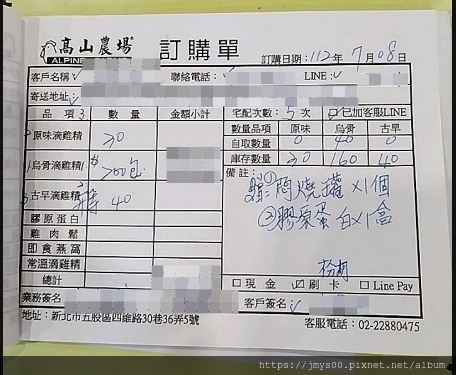 高山農場 訂購單 訂購日期:112年7月08日
ALPINE
客戶名稱 聯絡電話: LINE:
寄送地址:
品項 數量 金額小計 宅配次數:5次 已加客服LINE
數量品項 原味 烏骨 古早
原味滴雞精 20 自取數量 0 40 0
烏骨滴雞精 200包 庫存數量 20 160 40
古早滴雞精 40 備註:
①悶燒罐x1個
②膠原蛋白x1盒
膠原蛋白
雞肉鬆
即食燕窩
常溫滴雞精
總計 現金 刷卡 Line Pay
業務簽名 客戶簽名:
地址:新北市五股區四維路30巷36弄5號 客服電話:02-22880475
https://jmys00.pixnet.net/album